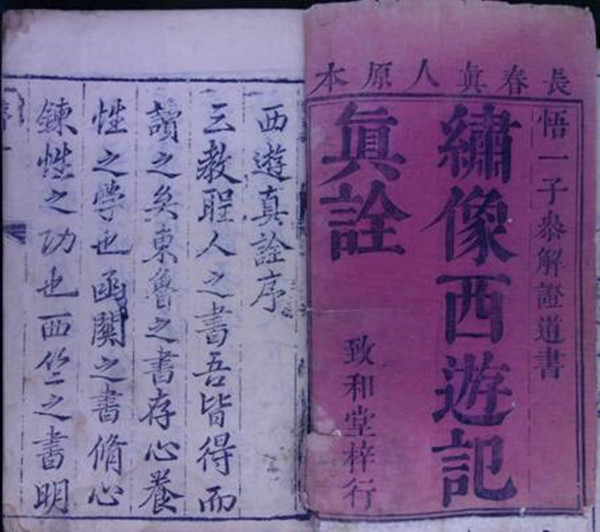 長春眞人原本
悟一子叅解證道書
繡像西遊記
眞詮
致和堂梓行
西遊真詮序
三教聖人之書吾皆得而
讀之矣東魯之書存心養
性之學也函關之書脩心
鍊性之功也西竺之書明